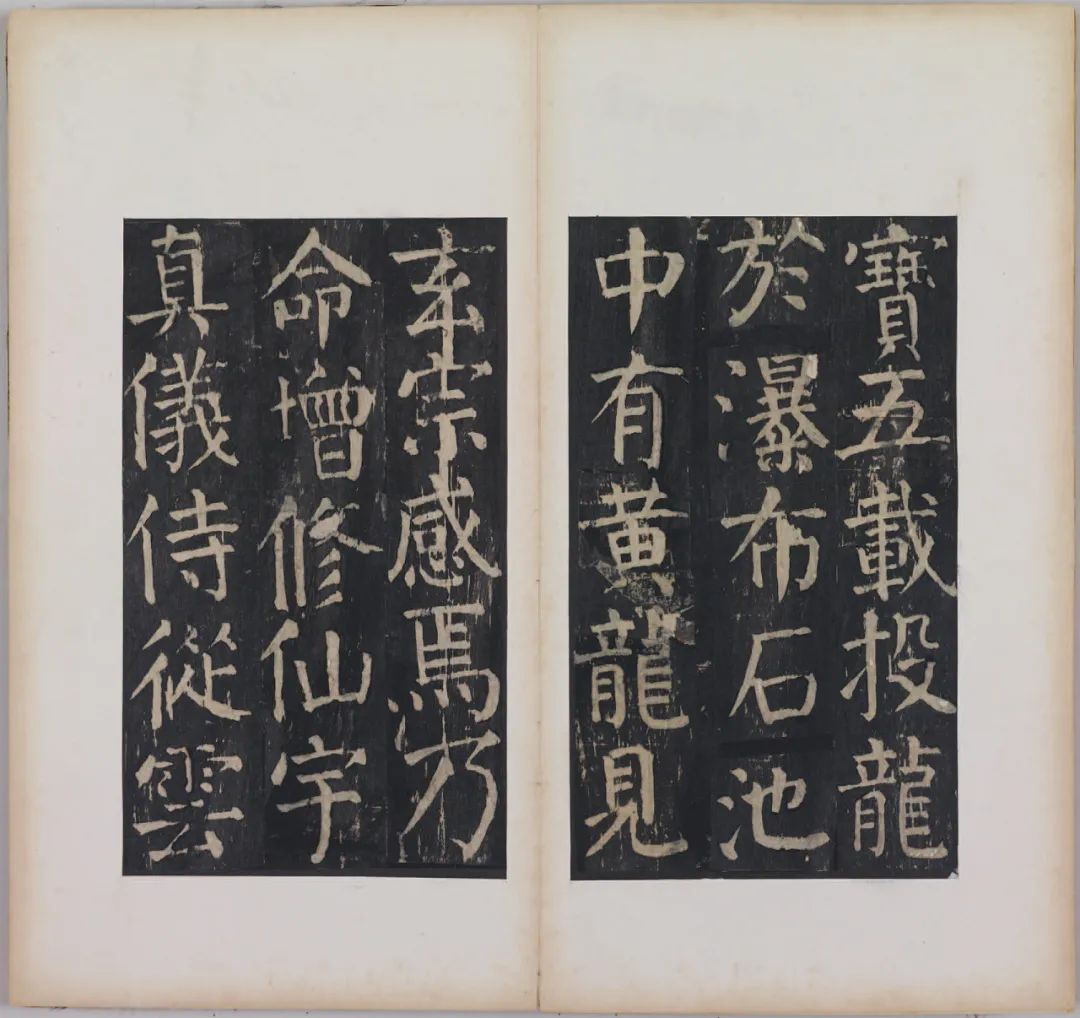 寶五載投龍
於瀑布石池
中有黃龍見
玄宗感焉乃
命增修仙宇
真儀侍從雲